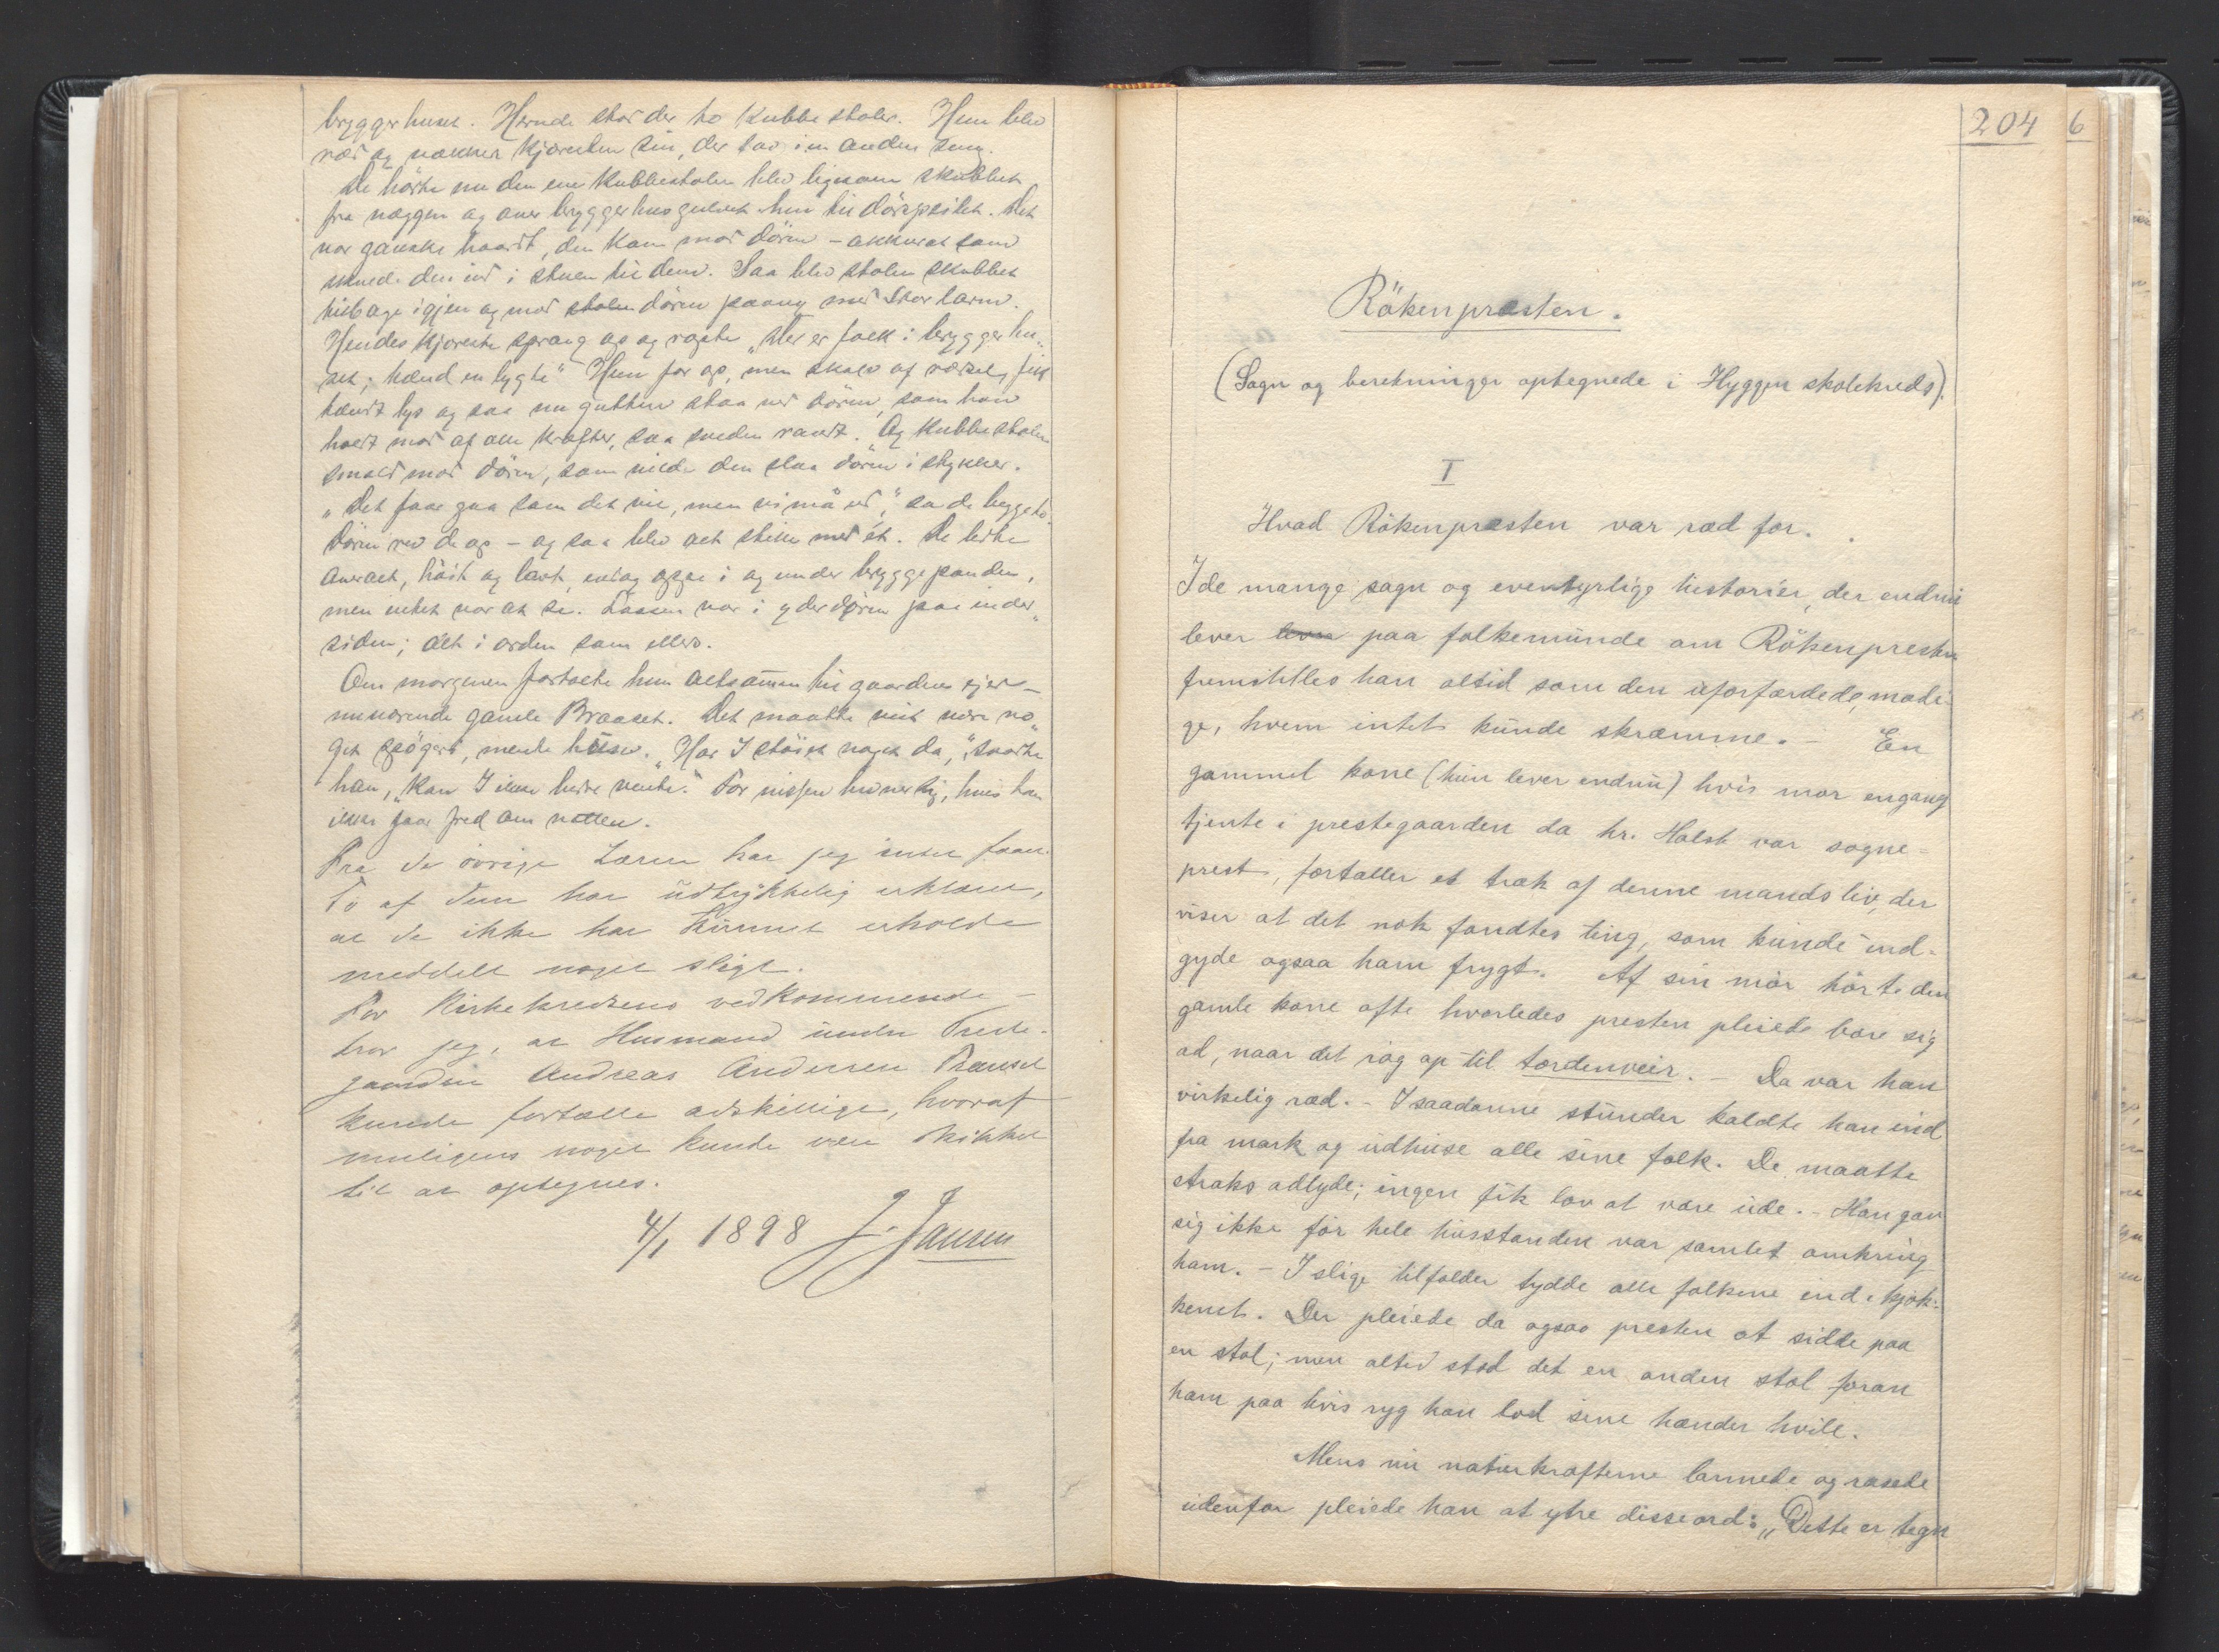 bryggerhuset. Herude stod der to Kubbestoler. Hun blev
ræd og vækker kjæresten sin, der laa i en anden seng.
De hörte nu den ene Kubbestolen blev ligesom skubbet
fra væggen og over bryggerhusgulvet hen til dörspeilet. Det
var ganske haardt, den kom mod dören – akkurat som
vilde den ind i stuen til dem. Saa blev stolen skubbet
tilbage igjen og mod stolen dören paany med stor larm.
Hendes kjæreste sprang op og ropte „Der er folk i bryggerhu„
set; tænd en lygte" Hun for op, men skalv af rædsel, fik
tændt lys og saa nu gutten staa ved dören, som han
holdt mod af alle kræfter, saa sveden randt. Og kubbestolen
smeld mod dören, som vilde den slaa dören i stykker.
„Det faar gaa som det vil, men vi må ud," sa de begge to.
Dören rev de op – og saa blev det stille med ét. De ledte
overalt, höit og lavt, endog oppe i og under bryggepanden,
men intet var at se. Laasen var i yderdören paa inder„
siden; alt i orden som ellers.
Om morgenen fortalte hun altsammen til gaardens eier –
nuværende gamle Braaset. Det maatte vist være no„
get spögeri, mente hun. „Har I støiet noget da," svarte
han, „Kan I ikke bedre vente." For nissen hevner sig, hvis han
ikke faar fred om natten.
Fra de övrige Lærere har jeg intet faaet.
To af dem har udtrykkelig erklæret,
at de ikke har kunnet erholde
meddelt noget sligt.
For Kirkekredsens vedkommende –
tror jeg, at Husmand under Preste-
gaarden Andreas Andersen
kunde fortælle adskilligt, hvoraf
muligens noget kunde være skikket
til at optegnes.
4/1 1898 J. Jansen
204 6
Rökenpræsten.
(Sagn og beretninger optegnede i Hyggen skolekreds).
I
Hvad Rökenpræsten var ræd for.
I de mange sagn og eventyrlige historier, der endnu
lever leve paa folkemunde om Rökenpresten
fremstilles han altid som den uforfærdede, modi-
ge, hvem intet kunde skræmme. – En
gammel kone (hun lever endnu) hvis mor engang
tjente i prestegaarden da hr. Holst var sogne-
prest, fortæller et træk af denne mands liv, der
viser at det nok fandtes ting, som kunde ind-
gyde ogsaa ham frygt. Af sin mor hörte den
gamle kone ofte hvorledes presten pleiede bære sig
ad, naar det rög op til tordenveir. – Da var han
virkelig ræd. – I saadanne stunder kaldte han ind
fra mark og udhuse alle sine folk. De maatte
straks adlyde; ingen fik lov at være ude. – Han gav
sig ikke för hele husstanden var samlet omkring
ham. – I slige tilfælder tydde alle folkene ind i kjök-
kenet. Der pleiede da ogsaa presten at sidde paa
en stol; men altid stod det en anden stol foran
ham paa hvis ryg han lod sine hænder hvile.
Mens nu naturkræfterne larmede og rasede
udenfor pleiede han at ytre disse ord: „Dette er tegn